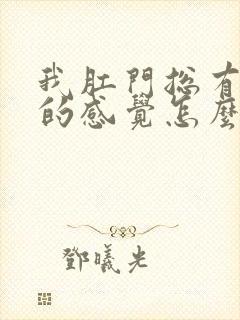 我肛門總有
的感覺怎麼
鄧曦光